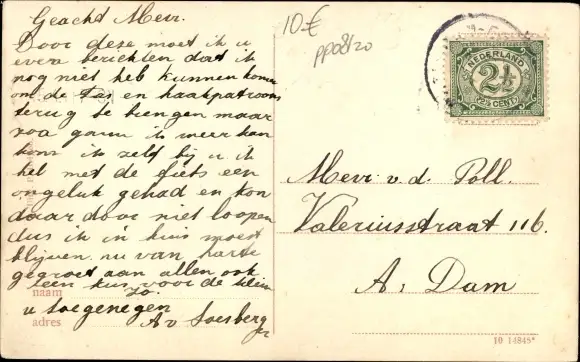 Geacht Mevr.
Door deze moet ik u
even berichten dat ik
nog niet heb kunnen komen
om de Tas en haakpatroons
terug te brengen maar
zoo gauw ik weer kan
kom ik zelf bij u ik
heb met de fiets een
ongeluk gehad en kon
daar door niet loopen
dus ik in huis moest
blijven nu van harte
gegroet aan allen ook
een kus voor de kleine
naam zo.
u toegenegen
adres A v Soesbergen
10 €
pp08120
NEDERLAND
2½
2½ CENT
Mevr. v. d. Poll.
Valeriusstraat 116.
A, Dam
10 14845*